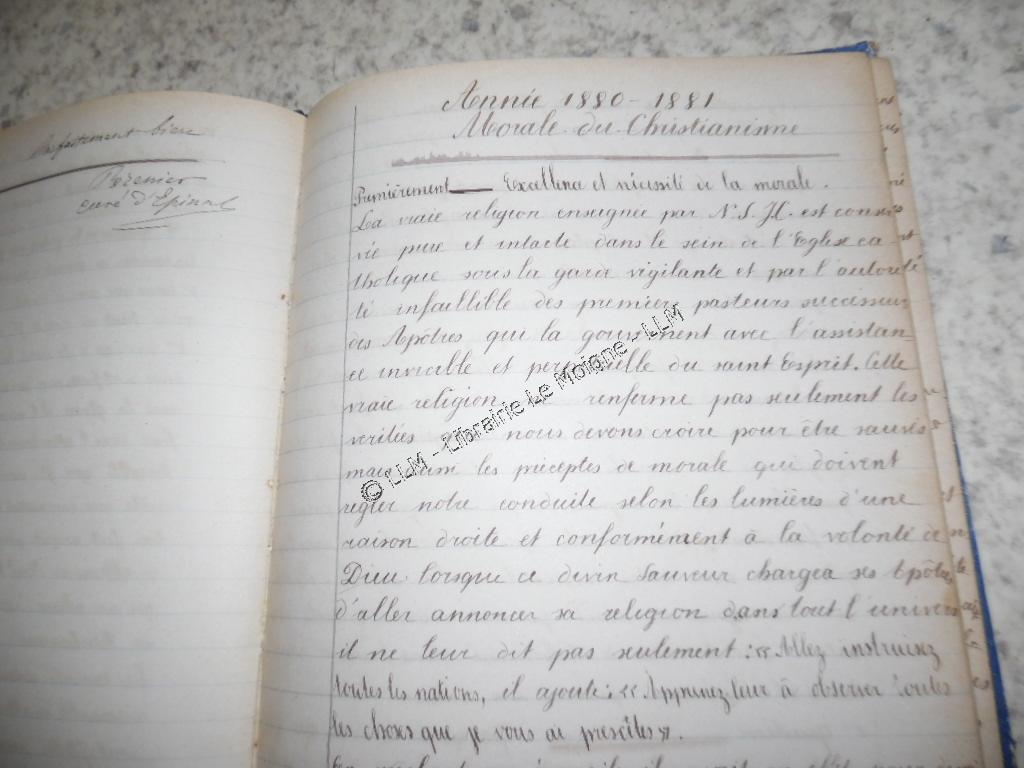 Parfaitement bien
curé d'Epinal
Année 1880-1881
Morale du Christianisme
Premièrement — Excellence et nécessité de la morale.
La vraie religion enseignée par N.S.J.C. est conser
vée pure et intacte dans le sein de l'Eglise ca
tholique sous la garde vigilante et par l'autori
té infaillible des premiers pasteurs successeurs
des Apôtres qui la gouvernent avec l'assistan
ce invicible et perpétuelle du saint Esprit. Cette
vraie religion renferme pas seulement les
verités nous devons croire pour être sauvés
mais aussi les préceptes de morale qui doivent
régler notre conduite selon les lumières d'une
raison droite et conformément à la volonté de
Dieu lorsque ce divin Sauveur chargea ses Apôtres
d'aller annoncer sa religion dans tout l'univers
il ne leur dit pas seulement : « Allez instruisez
toutes les nations, il ajoute : « Apprenez leur à observer toutes
les choses que je vous ai prescites ».
© LLM - Librairie Le Moigne - LLM